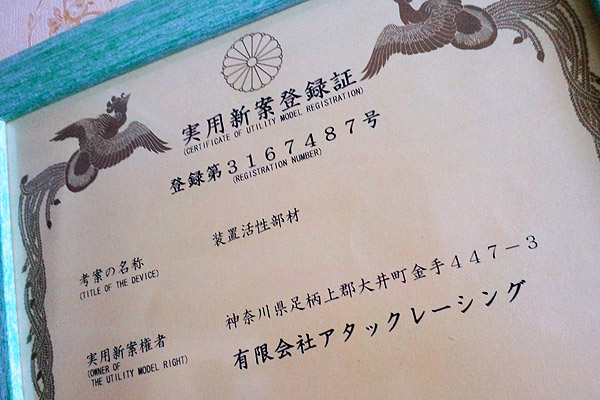 実用新案登録証
(CERTIFICATE OF UTILITY MODEL REGISTRATION)
登録第3167487号
(REGISTRATION NUMBER)
考案の名称
(TITLE OF THE DEVICE)
装置活性部材
実用新案権者
(OWNER OF
THE UTILITY MODEL RIGHT)
神奈川県足柄上郡大井町金手447-3
有限会社アタックレーシング